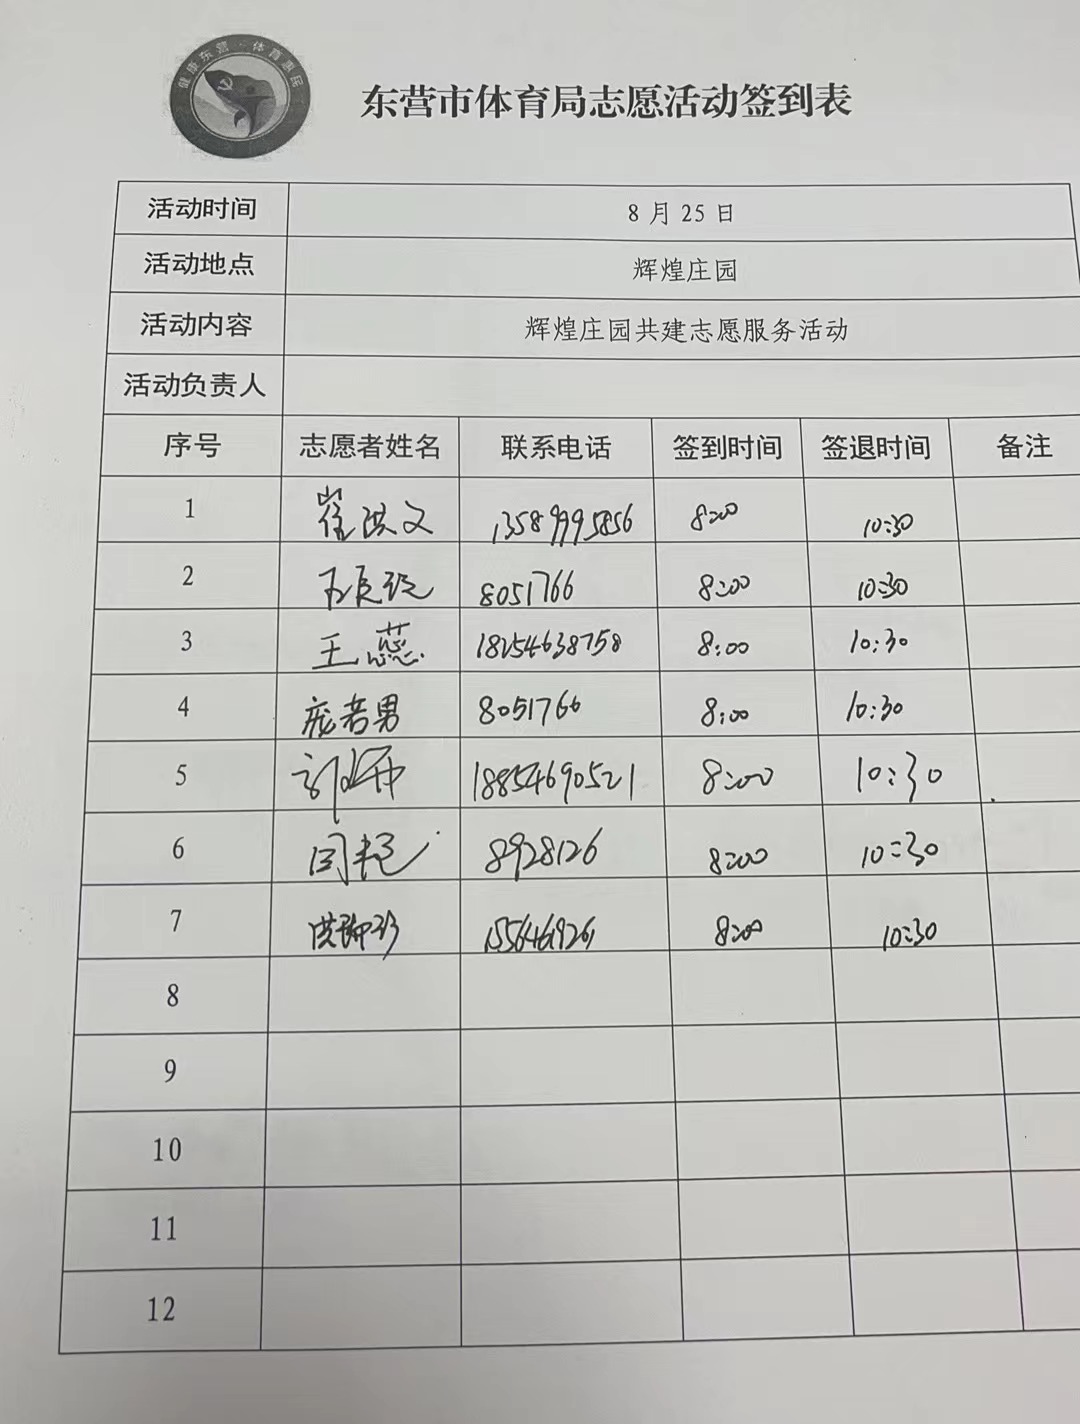 健康东营·体育惠民
东营市体育局志愿活动签到表
活动时间 8月25日
活动地点 辉煌庄园
活动内容 辉煌庄园共建志愿服务活动
活动负责人
序号 志愿者姓名 联系电话 签到时间 签退时间 备注
1 崔洪文 13589995856 8:00 10:30
2 8051766 8:00 10:30
3 王蕊 18254638758 8:00 10:30
4 庞若男 8051766 8:00 10:30
5 18854690521 8:00 10:30
6 闫艳 8928126 8:00 10:30
7 8:00 10:30
8
9
10
11
12